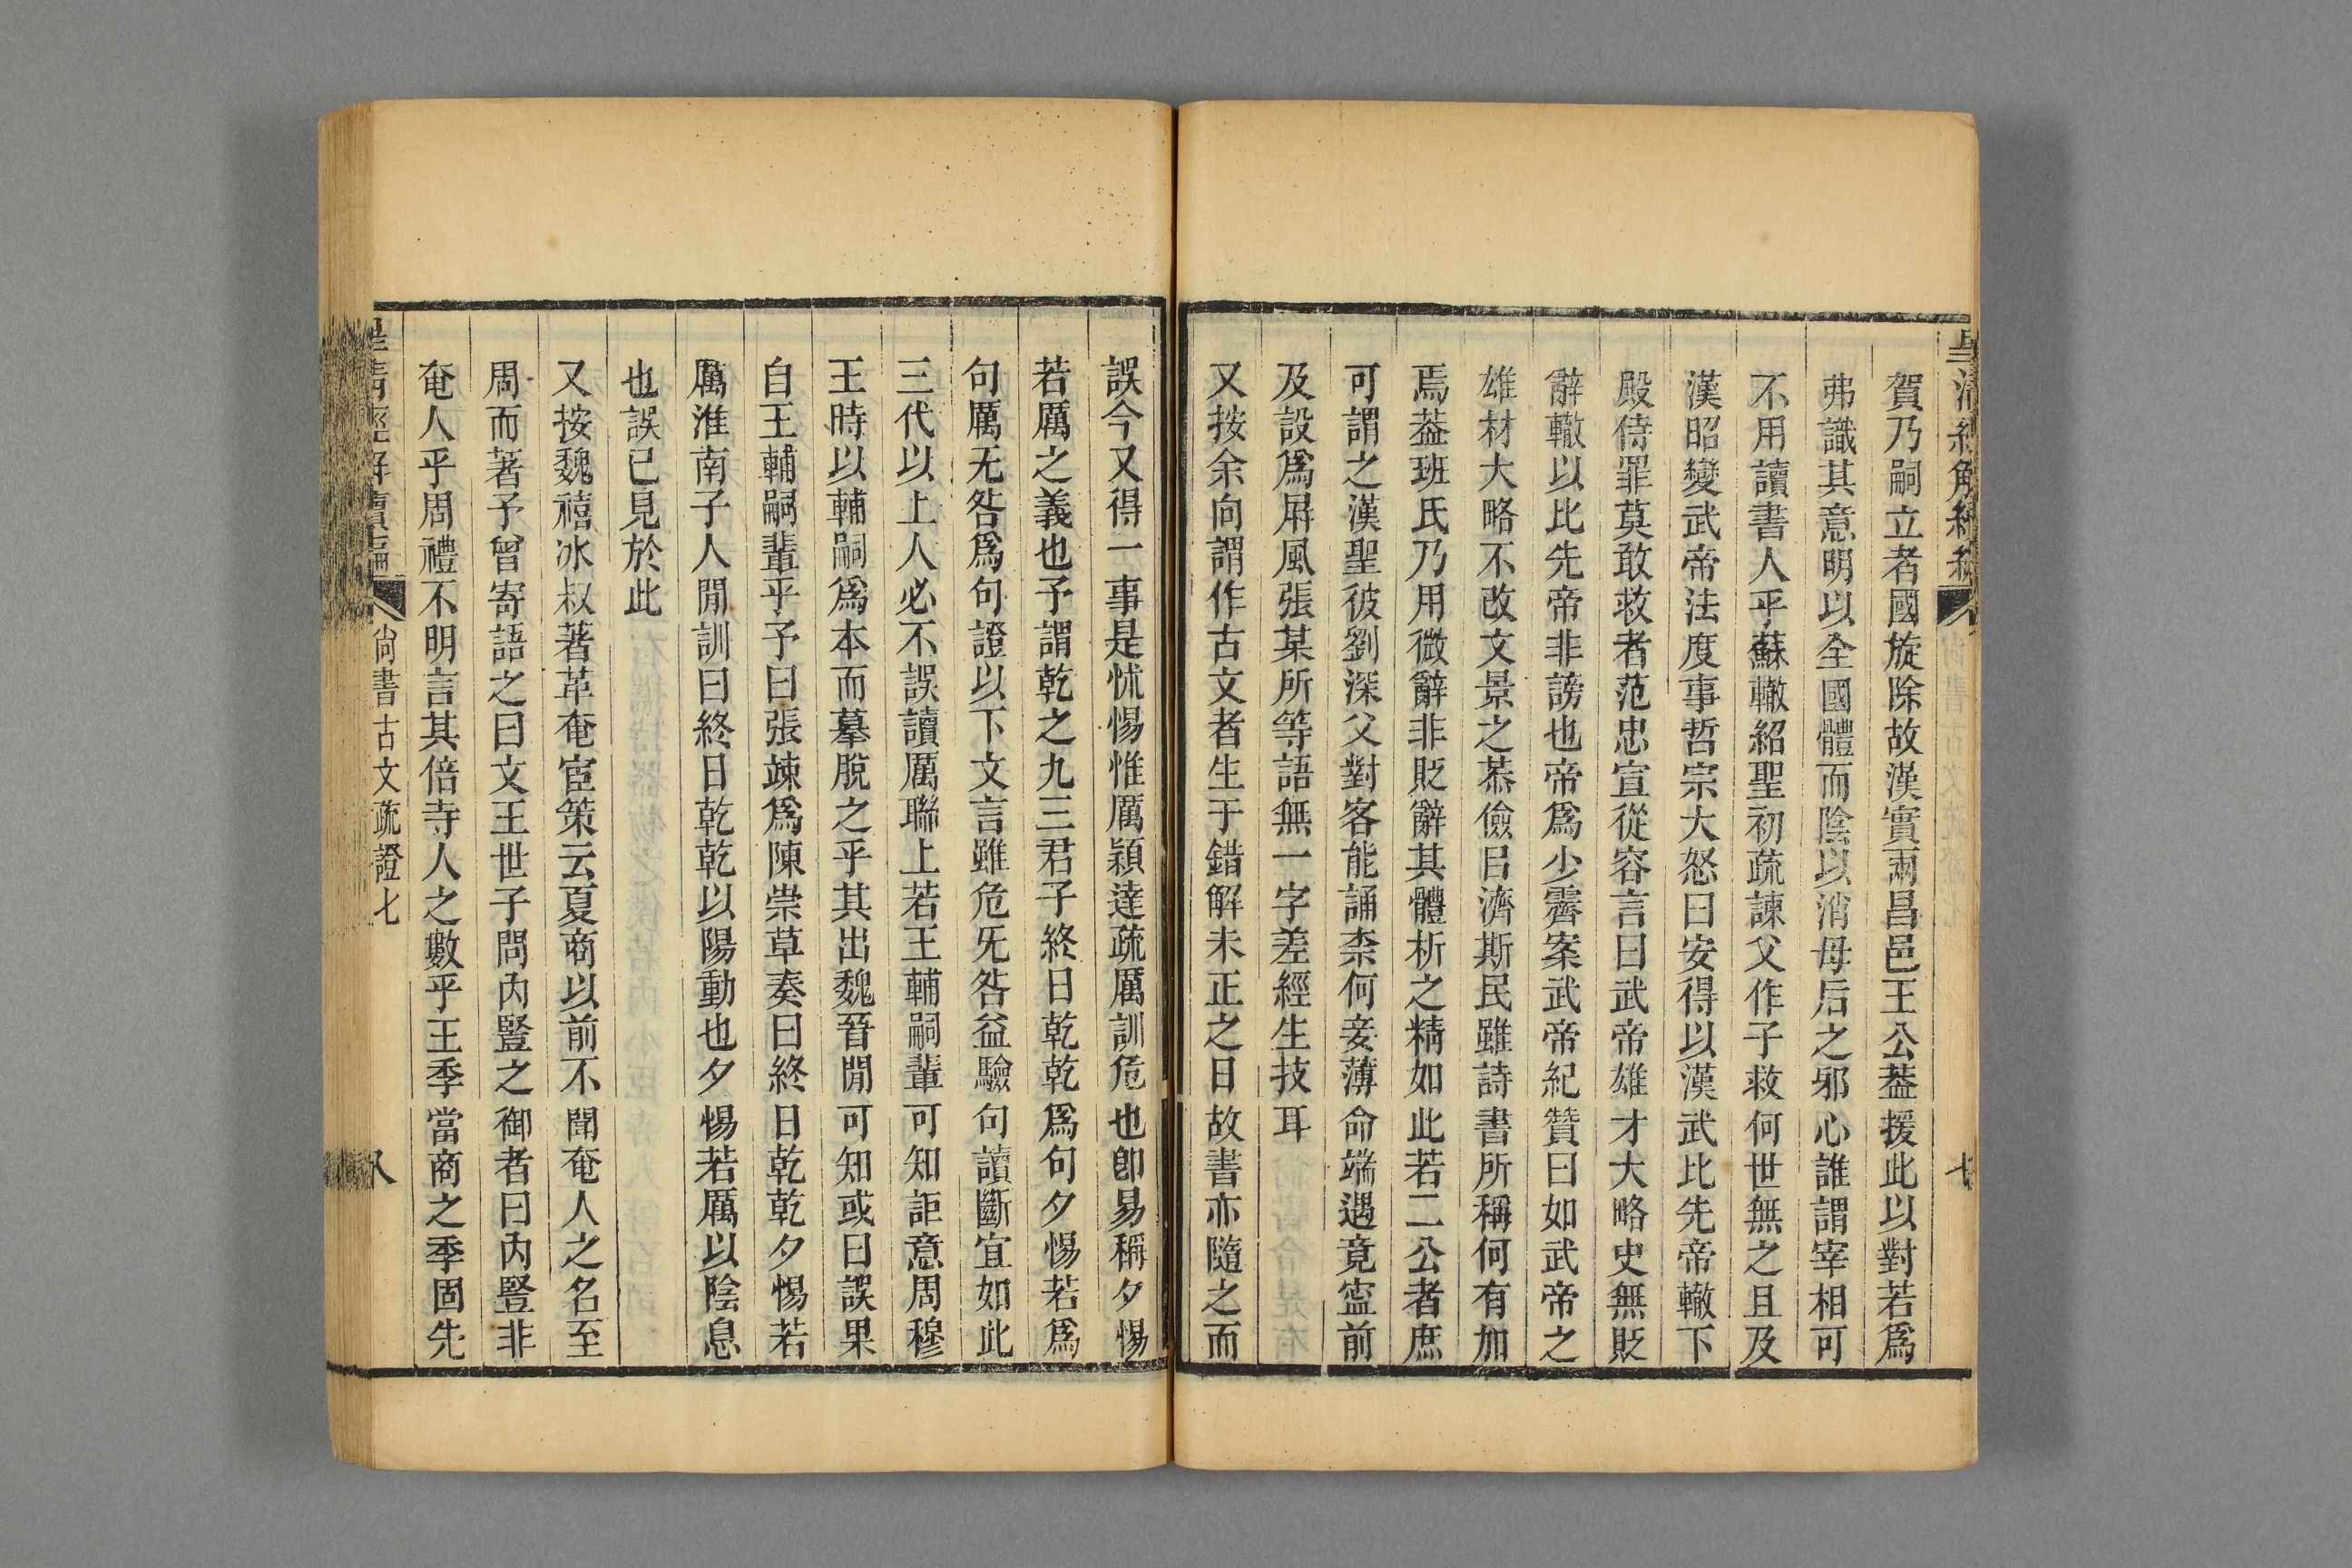 賀乃嗣立者國旋除故漢實兩昌邑王公葢援此以對若爲
弗識其意明以全國體而陰以消母后之邪心誰謂宰相可
不用讀書人乎蘇轍紹聖初疏諫父作子救何世無之且及
漢昭變武帝法度事哲宗大怒曰安得以漢武比先帝轍下
殿侍罪莫敢救者范忠宣從容言曰武帝雄才大略史無貶
辭轍以比先帝非謗也帝爲少霽案武帝紀贊曰如武帝之
雄材大略不改文景之恭儉㠯濟斯民雖詩書所稱何有加
焉葢班氏乃用微辭非貶辭其體析之精如此若二公者庶
可謂之漢聖彼劉深父對客能誦柰何妾薄命端遇竟寍前
及設爲屏風張某所等語無一字差經生技耳
又按余向謂作古文者生于錯解未正之日故書亦隨之而
誤今又得一事是怵惕惟厲穎達疏厲訓危也卽易稱夕惕
若厲之義也予謂乾之九三君子終日乾乾爲句夕惕若爲
句厲无咎爲句證以下文言雖危旡咎益驗句讀斷宜如此
三代以上人必不誤讀厲聯上若王輔嗣輩可知詎意周穆
王時以輔嗣爲本而摹脫之乎其出魏晉閒可知或曰誤果
自王輔嗣輩乎予曰張竦爲陳崇草奏曰終日乾乾夕惕若
厲淮南子人閒訓曰終日乾乾以陽動也夕惕若厲以陰息
也誤已見於此
又按魏禧冰叔著革奄宦策云夏商以前不聞奄人之名至
周而著予曾寄語之曰文王世子問內豎之御者曰內豎非
奄人乎周禮不明言其倍寺人之數乎王季當商之季固先
尙書古文疏證七
八